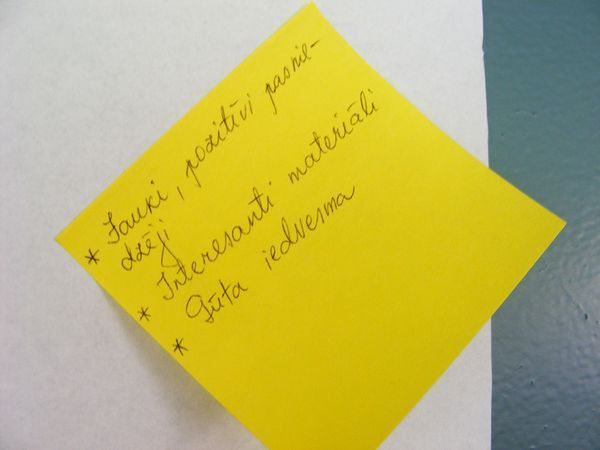 * Jauki, pozitīvi pasnie-
dzēji
* Interesanti materiāli
* Gūta iedvesma